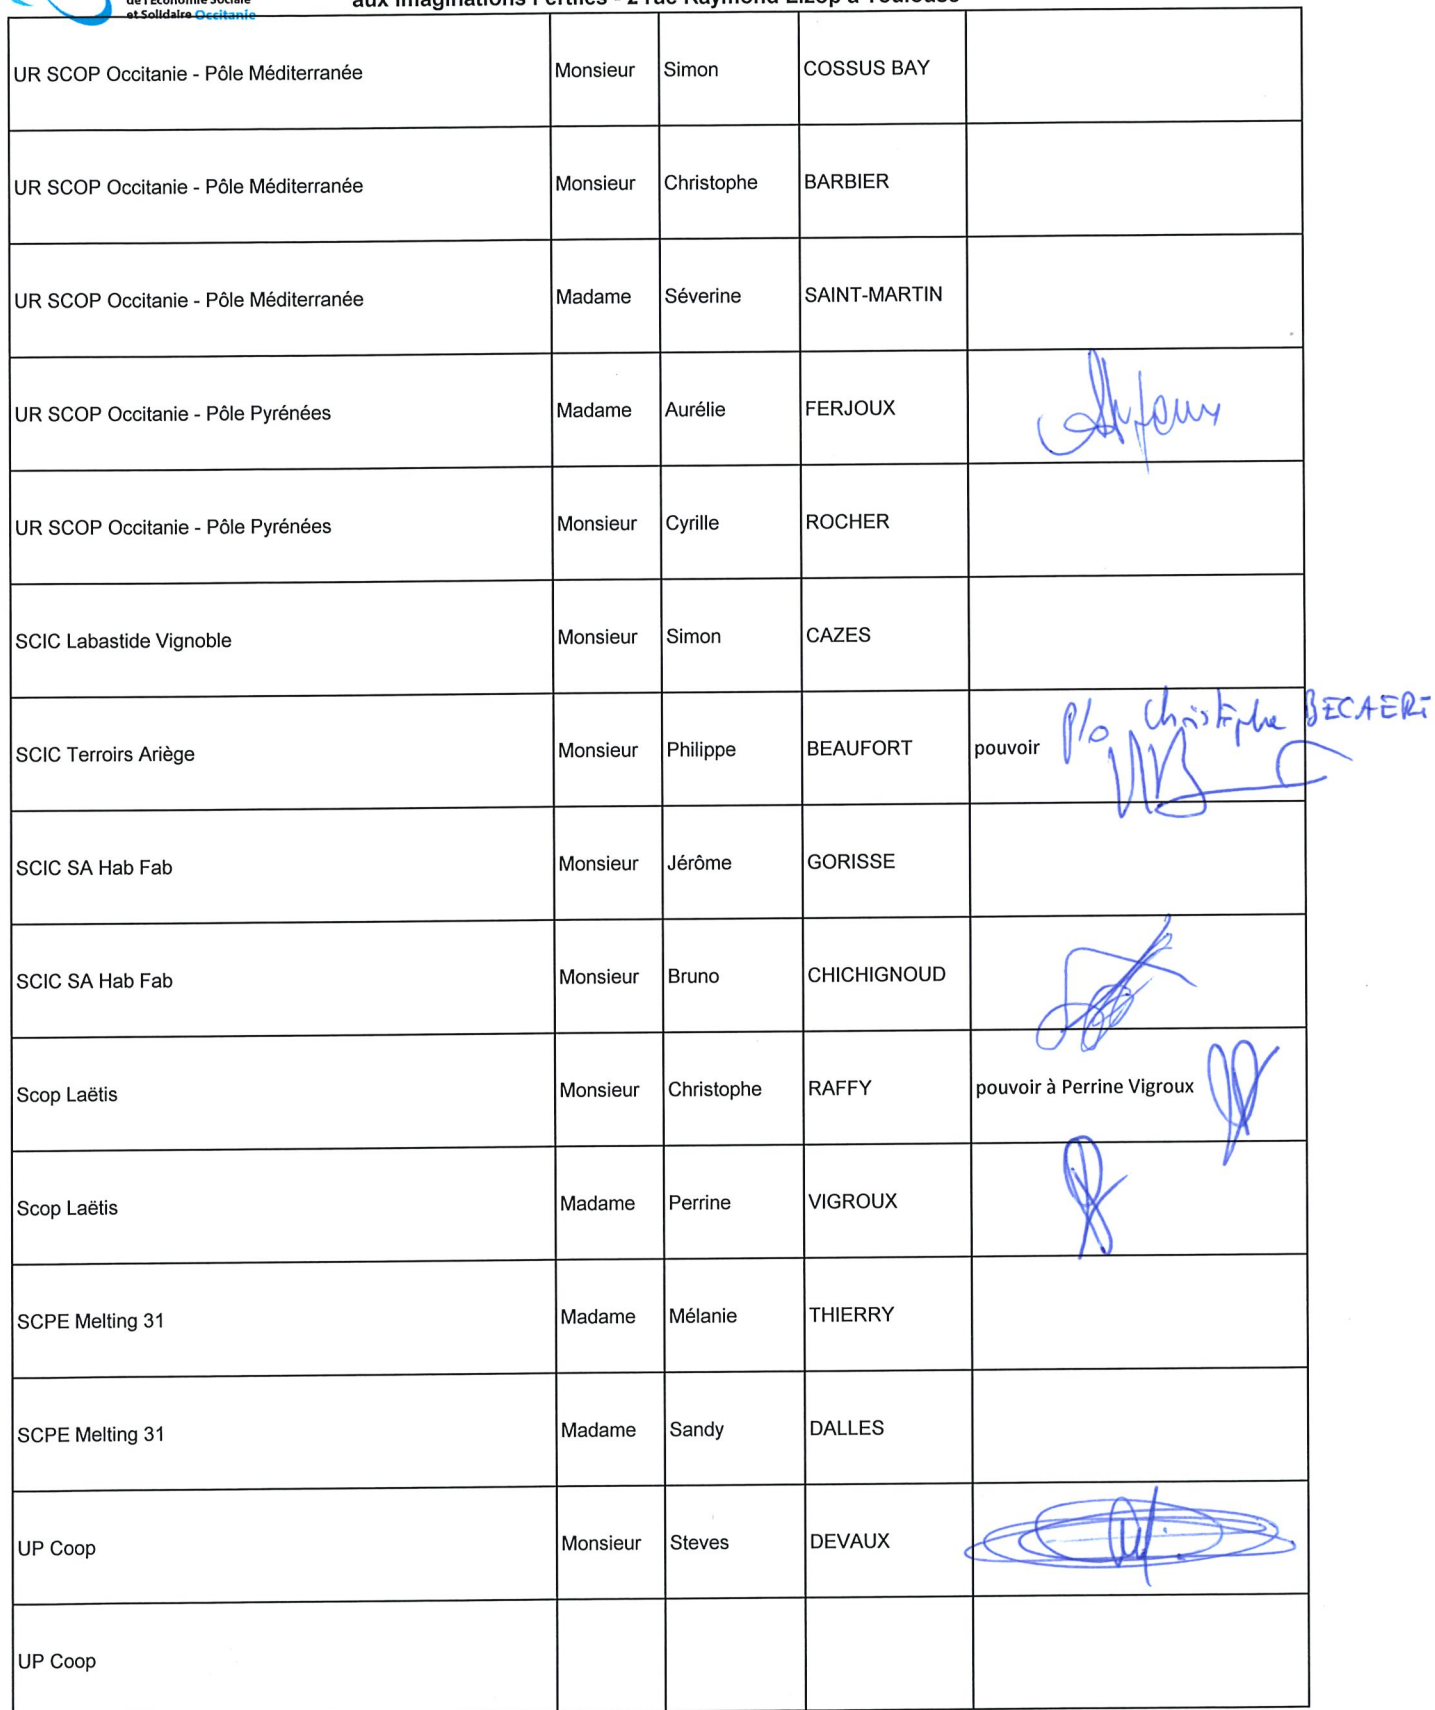 de l'Économie Sociale
et Solidaire Occitanie
aux Imaginations Fertiles - 2 rue Raymond Lizop à Toulouse
UR SCOP Occitanie - Pôle Méditerranée Monsieur Simon COSSUS BAY
UR SCOP Occitanie - Pôle Méditerranée Monsieur Christophe BARBIER
UR SCOP Occitanie - Pôle Méditerranée Madame Séverine SAINT-MARTIN
UR SCOP Occitanie - Pôle Pyrénées Madame Aurélie FERJOUX
UR SCOP Occitanie - Pôle Pyrénées Monsieur Cyrille ROCHER
SCIC Labastide Vignoble Monsieur Simon CAZES
SCIC Terroirs Ariège Monsieur Philippe BEAUFORT pouvoir P/o Christophe BECAERT
SCIC SA Hab Fab Monsieur Jérôme GORISSE
SCIC SA Hab Fab Monsieur Bruno CHICHIGNOUD
Scop Laëtis Monsieur Christophe RAFFY pouvoir à Perrine Vigroux
Scop Laëtis Madame Perrine VIGROUX
SCPE Melting 31 Madame Mélanie THIERRY
SCPE Melting 31 Madame Sandy DALLES
UP Coop Monsieur Steves DEVAUX
UP Coop